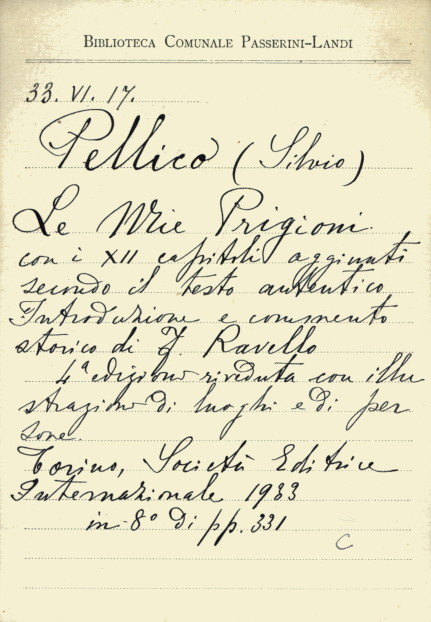 BIBLIOTECA COMUNALE PASSERINI-LANDI
33. VI. 17.
Pellico (Silvio)
Le Mie Prigioni
con i XII capitoli aggiunti
secondo il testo autentico
Introduzione e commento
storico di F. Ravello
4ª edizione riveduta con illu
strazioni di luoghi e di per
sone.
Torino, Società Editrice
Internazionale 1933
in-8º di pp. 331
C